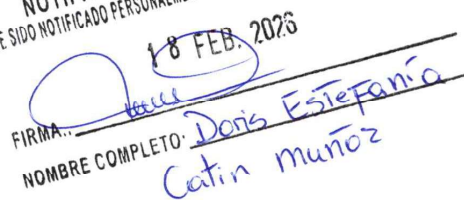 E SIDO NOTIFICADO
18 FEB. 2026
FIRMA.:
NOMBRE COMPLETO: Doris Estefanía
Catin Muñoz